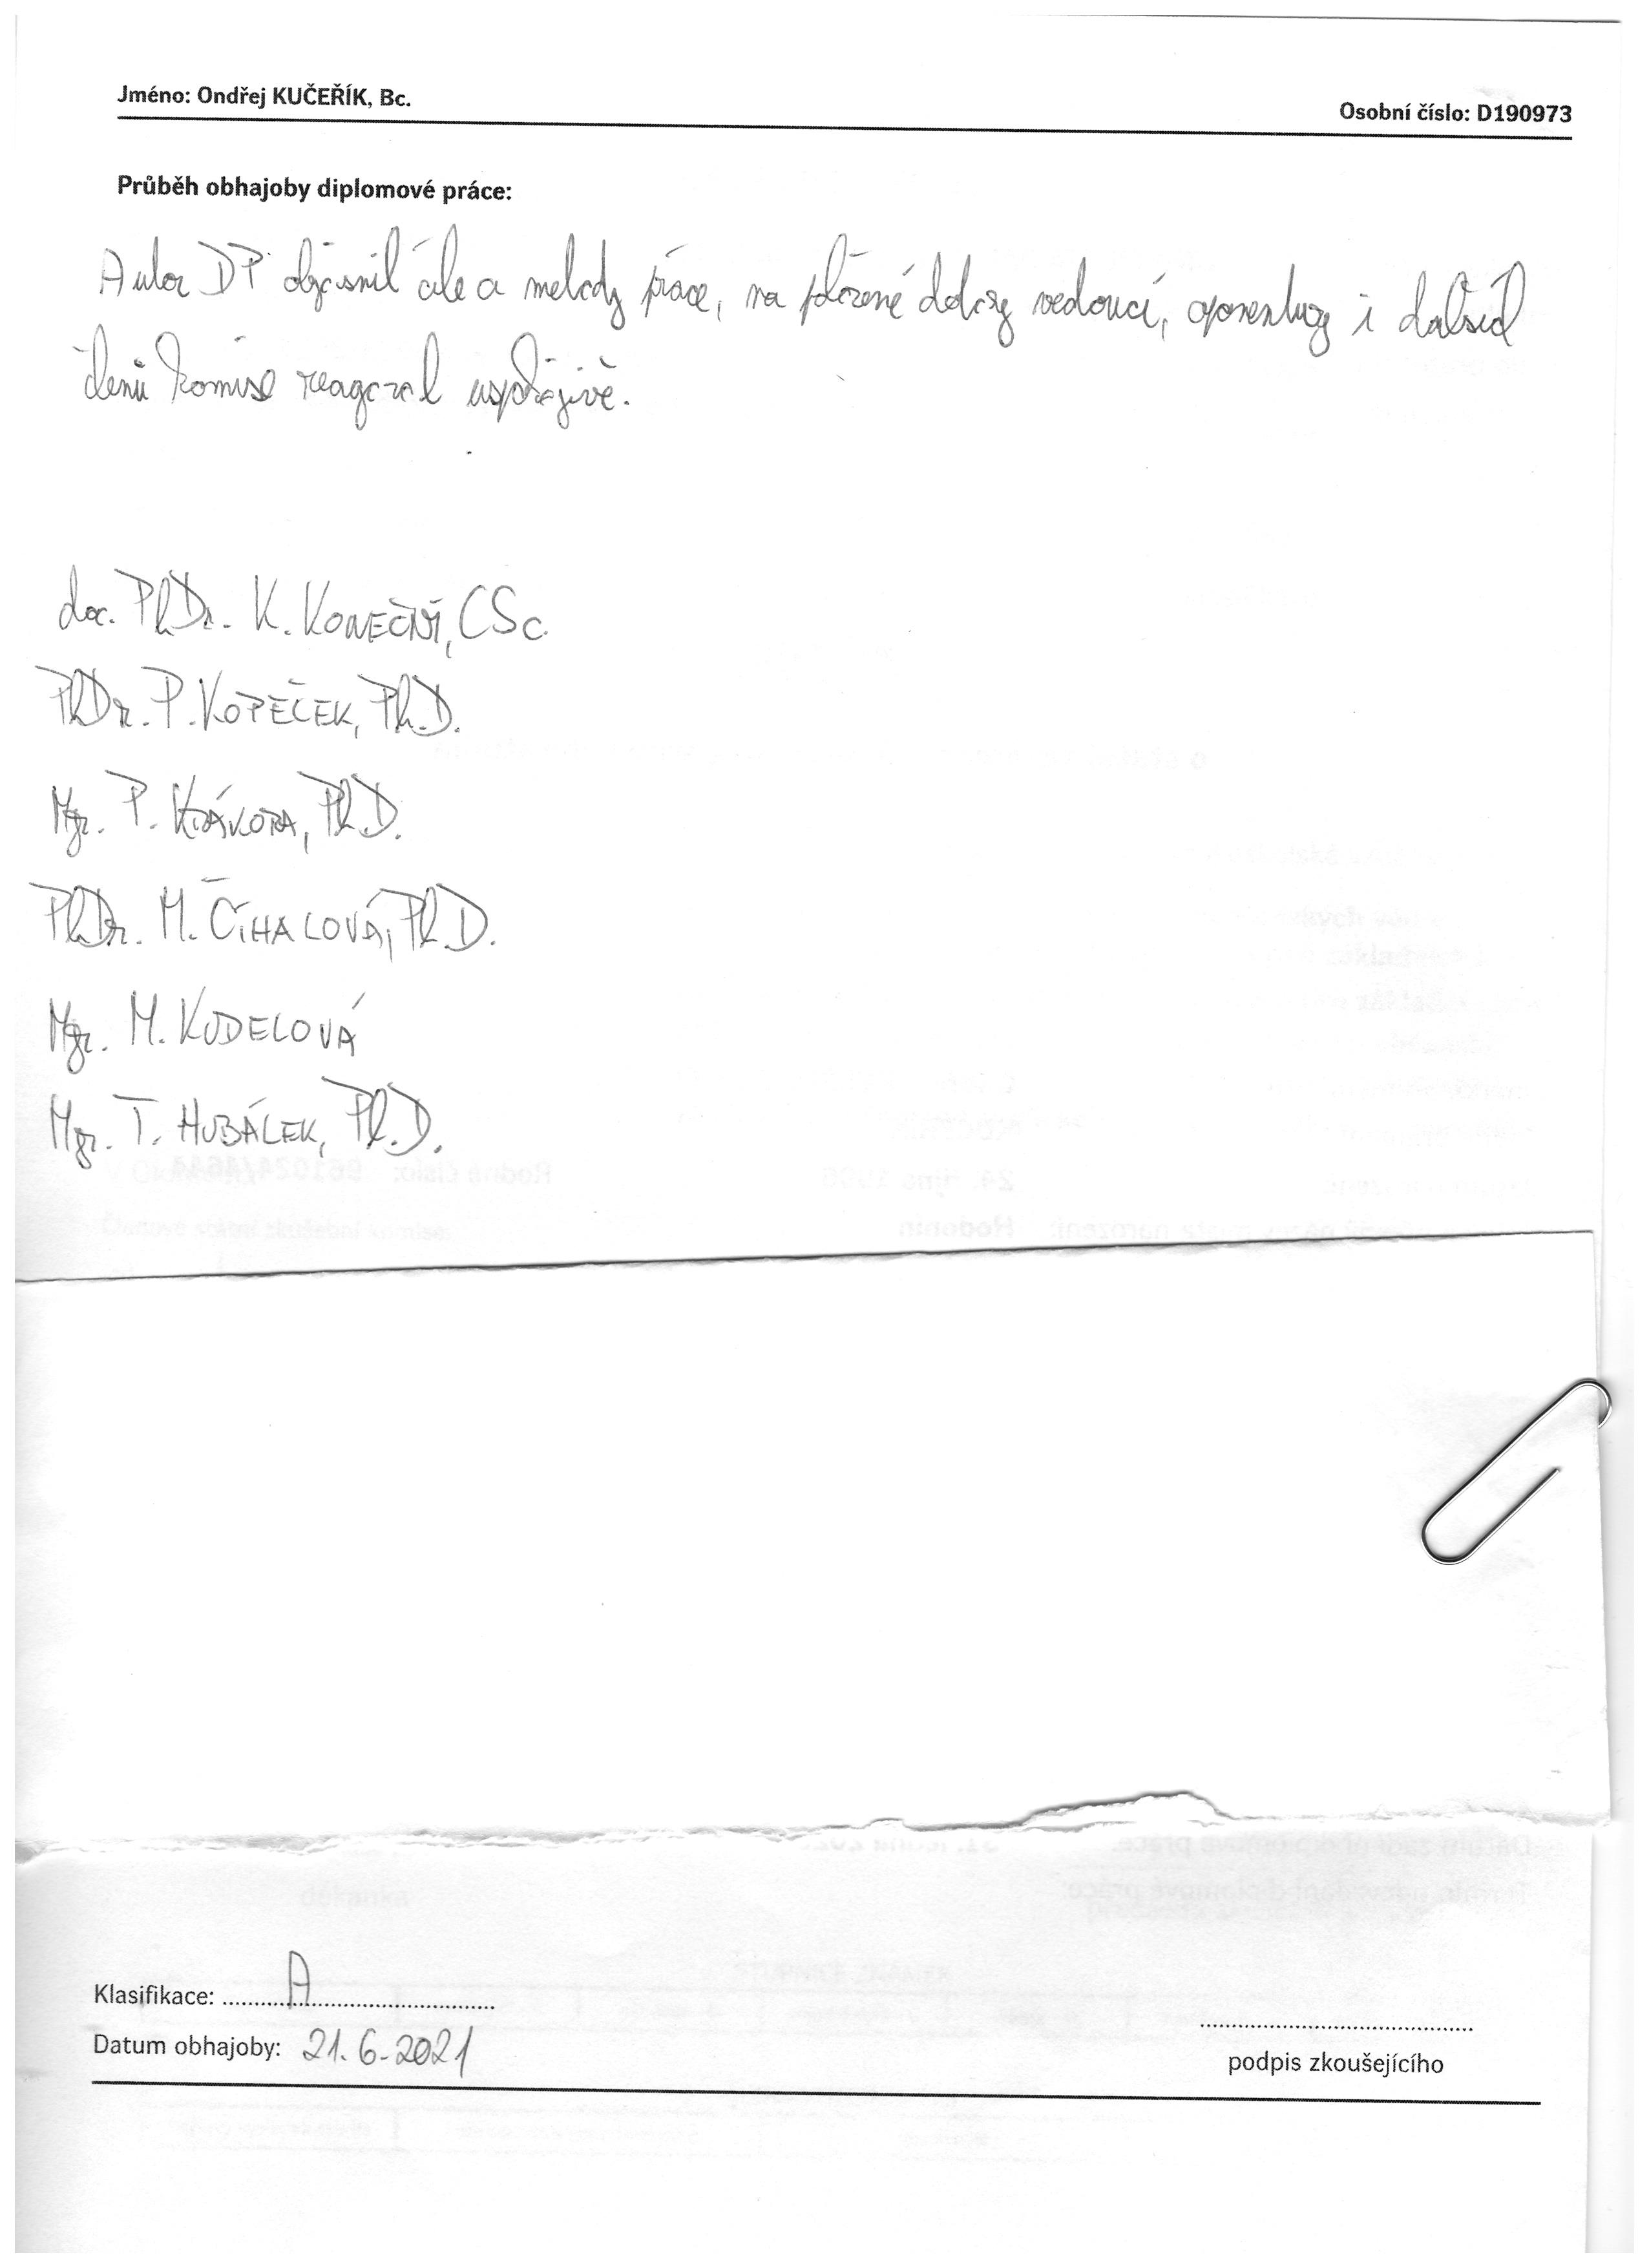 Jméno: Ondřej KUČEŘÍK, Bc.
Osobní číslo: D190973
Průběh obhajoby diplomové práce:
Autor DP objasnil cíle a metody práce, na položené dotazy vedoucí, oponentury i dalších
členů komise reagoval uspokojivě.
doc. PhDr. K. KONEČNÝ, CSc.
PhDr. P. KOPEČEK, Ph.D.
Mgr. P. KRÁKORA, Ph.D.
PhDr. M. ČÍHALOVÁ, Ph.D.
Mgr. M. KUDELOVÁ
Mgr. T. HUBÁLEK, Ph.D.
Rodné číslo: 961024/4644
24. října 1996
Hodonín
děkanka
Klasifikace: A
Datum obhajoby: 21.6.2021
podpis zkoušejícího